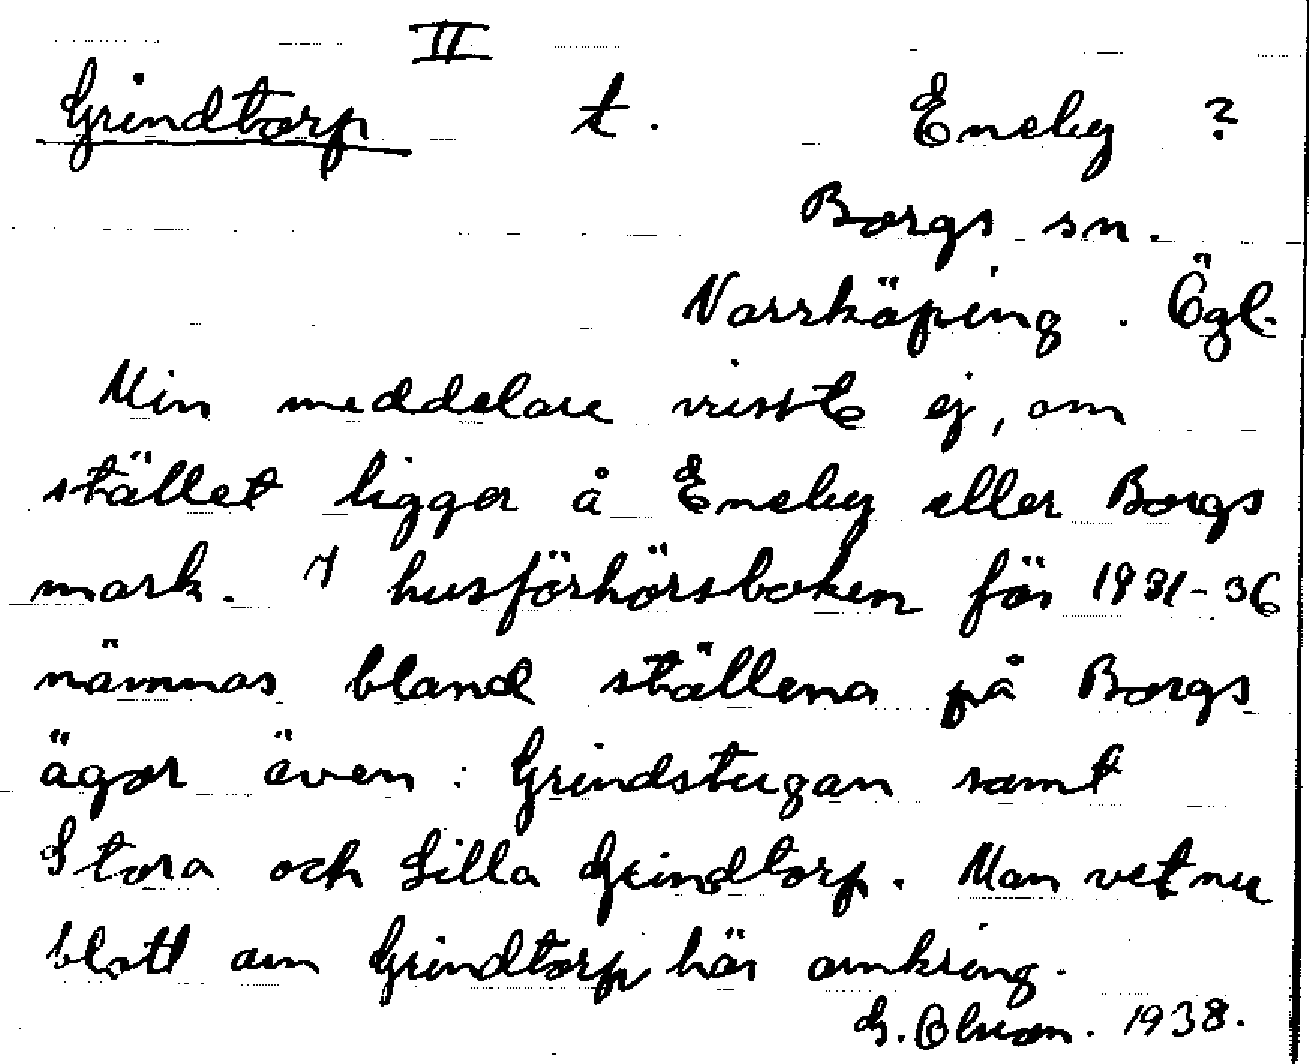 II
Grindtorp t. Eneby ?
Borgs sn.
Norrköping. Ögl.
Min meddelare visste ej, om
stället ligger å Eneby eller Borgs
mark. I husförhörsboken för 1831-36
nämnas bland ställena på Borgs
ägor även: Grindstugan samt
Stora och Lilla Grindtorp. Man vet nu
blott om Grindtorp här omkring.
G. Olson. 1938.